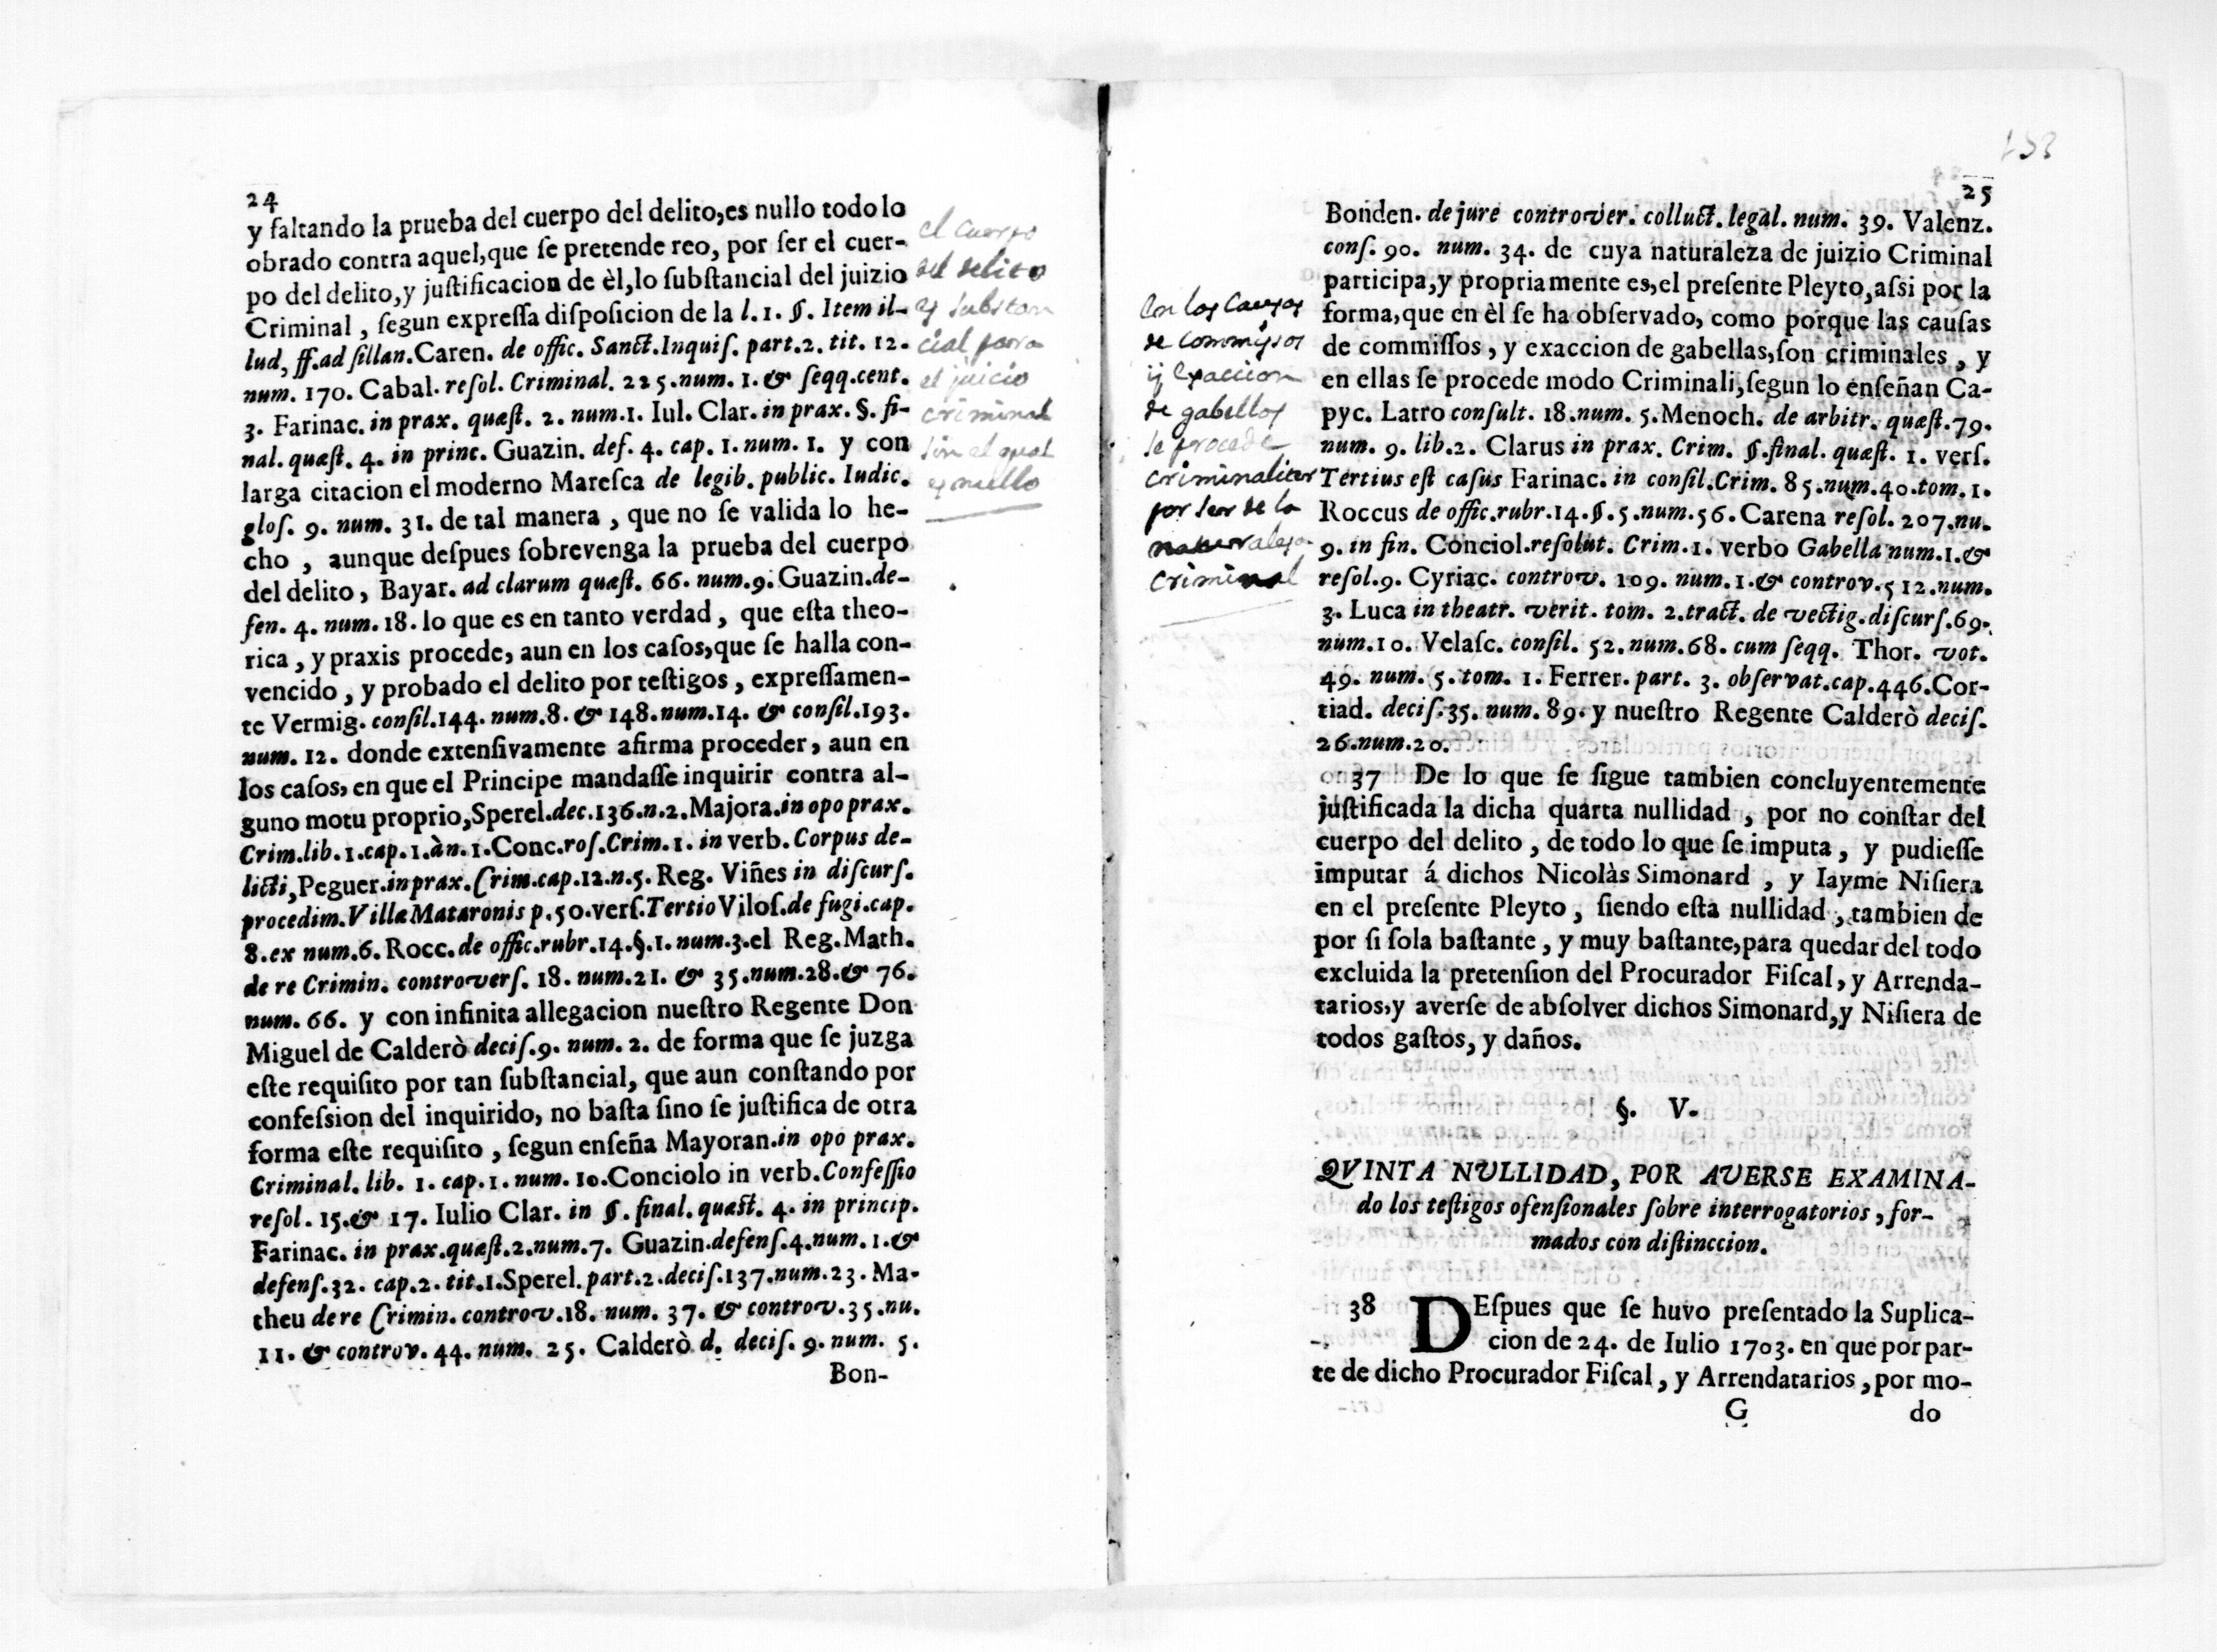 24
y faltando la prueba del cuerpo del delito,es nullo todo lo
obrado contra aquel,que ſe pretende reo, por ſer el cuer-
po del delito,y juſtificacion de èl,lo ſubſtancial del juizio
Criminal , ſegun expreſſa diſpoſicion de la l. 1. §. Item il-
lud, ff.ad ſillan.Caren. de offic. Sanct.Inquiſ. part.2. tit. 12.
num. 170. Cabal. reſol. Criminal. 225.num. 1.& ſeqq.cent.
3. Farinac. in prax. quæſt. 2. num.1. Iul. Clar. in prax. §. fi-
nal. quæſt. 4. in princ. Guazin. def. 4. cap. 1. num. 1. y con
larga citacion el moderno Mareſca de legib. public. Iudic.
gloſ. 9. num. 31. de tal manera , que no ſe valida lo he-
cho , aunque deſpues ſobrevenga la prueba del cuerpo
del delito , Bayar. ad clarum quæſt. 66. num.9. Guazin.de-
fen. 4. num. 18. lo que es en tanto verdad , que eſta theo-
rica , y praxis procede, aun en los caſos,que ſe halla con-
vencido , y probado el delito por teſtigos , expreſſamen-
te Vermig. conſil.144. num.8. & 148.num.14. & conſil.193.
num. 12. donde extenſivamente afirma proceder, aun en
los caſos, en que el Principe mandaſſe inquirir contra al-
guno motu proprio,Sperel.dec.136.n.2.Majora.in opo prax.
Crim.lib. 1.cap.1.àn. 1.Conc.roſ.Crim.1. in verb. Corpus de-
licti,Peguer.in prax.Crim.cap.12.n.5. Reg. Viñes in diſcurſ.
procedim.Villæ Mataronis p.50.verſ.Tertio Viloſ.de fugi.cap.
8.ex num.6. Rocc.de offic.rubr.14.§.1. num.3.el Reg.Math.
de re Crimin. controverſ. 18. num.21. & 35.num.28.& 76.
num. 66. y con infinita allegacion nueſtro Regente Don
Miguel de Calderò deciſ.9. num. 2. de forma que ſe juzga
eſte requiſito por tan ſubſtancial, que aun conſtando por
confeſsion del inquirido, no baſta ſino ſe juſtifica de otra
forma eſte requiſito , ſegun enſeña Mayoran.in opo prax.
Criminal. lib. 1. cap.1. num. 10.Conciolo in verb.Confeſſio
reſol. 15.& 17. Iulio Clar. in §. final. quæſt. 4. in princip.
Farinac. in prax.quæſt.2.num.7. Guazin.defenſ.4.num. 1.&
defenſ.32. cap.2. tit.1.Sperel. part.2.deciſ.137.num.23. Ma-
theu de re Crimin. controv.18. num. 37. & controv.35.nu.
11. & controv. 44. num. 25. Calderò d. deciſ. 9. num. 5.
Bon-
el cuerpo
del delito
es substan
cial para
el juicio
criminal
sin el qual
es nullo
153
25
Bonden. de jure controver. colluct. legal. num. 39. Valenz.
conſ. 90. num. 34. de cuya naturaleza de juizio Criminal
participa,y propriamente es,el preſente Pleyto,aſsi por la
forma,que en èl ſe ha obſervado, como porque las cauſas
de commiſſos , y exaccion de gabellas,ſon criminales , y
en ellas ſe procede modo Criminali,ſegun lo enſeñan Ca-
pyc. Latro conſult. 18.num. 5.Menoch. de arbitr. quæſt.79.
num. 9. lib.2. Clarus in prax. Crim. §.final. quæſt. 1. verſ.
Tertius eſt caſus Farinac. in conſil.Crim. 85.num.40.tom.1.
Roccus de offic.rubr.14.§.5.num.56.Carena reſol. 207.nu.
9. in fin. Conciol.reſolut. Crim.1. verbo Gabella num.1.&
reſol.9. Cyriac. controv. 109. num.1.& controv.512.num.
3. Luca in theatr. verit. tom. 2.tract. de vectig.diſcurſ.69.
num.10. Velaſc. conſil. 52.num.68. cum ſeqq. Thor. vot.
49. num. 5. tom. 1. Ferrer. part. 3. obſervat.cap.446.Cor-
tiad. deciſ.35. num. 89. y nueſtro Regente Calderò deciſ.
26.num.20.
37 De lo que ſe ſigue tambien concluyentemente
juſtificada la dicha quarta nullidad , por no conſtar del
cuerpo del delito , de todo lo que ſe imputa , y pudieſſe
imputar á dichos Nicolàs Simonard , y Iayme Niſiera
en el preſente Pleyto , ſiendo eſta nullidad , tambien de
por ſi ſola baſtante , y muy baſtante,para quedar del todo
excluida la pretenſion del Procurador Fiſcal, y Arrenda-
tarios,y averſe de abſolver dichos Simonard,y Niſiera de
todos gaſtos, y daños.
§. V.
QVINTA NULLIDAD, POR AVERSE EXAMINA-
do los teſtigos ofenſionales ſobre interrogatorios , for-
mados con diſtinccion.
38 DEſpues que ſe huvo preſentado la Suplica-
cion de 24. de Iulio 1703. en que por par-
te de dicho Procurador Fiſcal, y Arrendatarios , por mo-
G do
en las causas
de commisos
y exaccion
de gabellas
se procede
criminaliter
por ser de la
naturaleza
criminal